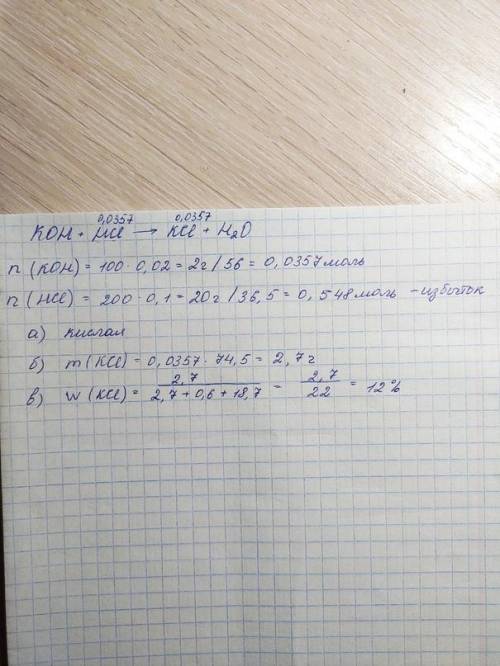 0,0357 0,0357
KOH + HCl → KCl + H₂O
n (KOH) = 100 · 0,02 = 2г / 56 = 0,0357 моль
n (HCl) = 200 · 0,1 = 20г / 36,5 = 0,548 моль - избыток
а) кислая
б) m (KCl) = 0,0357 · 74,5 = 2,7 г
в) w (KCl) = 2,7 / 2,7 + 0,6 + 18,7 = 2,7 / 22 = 12%